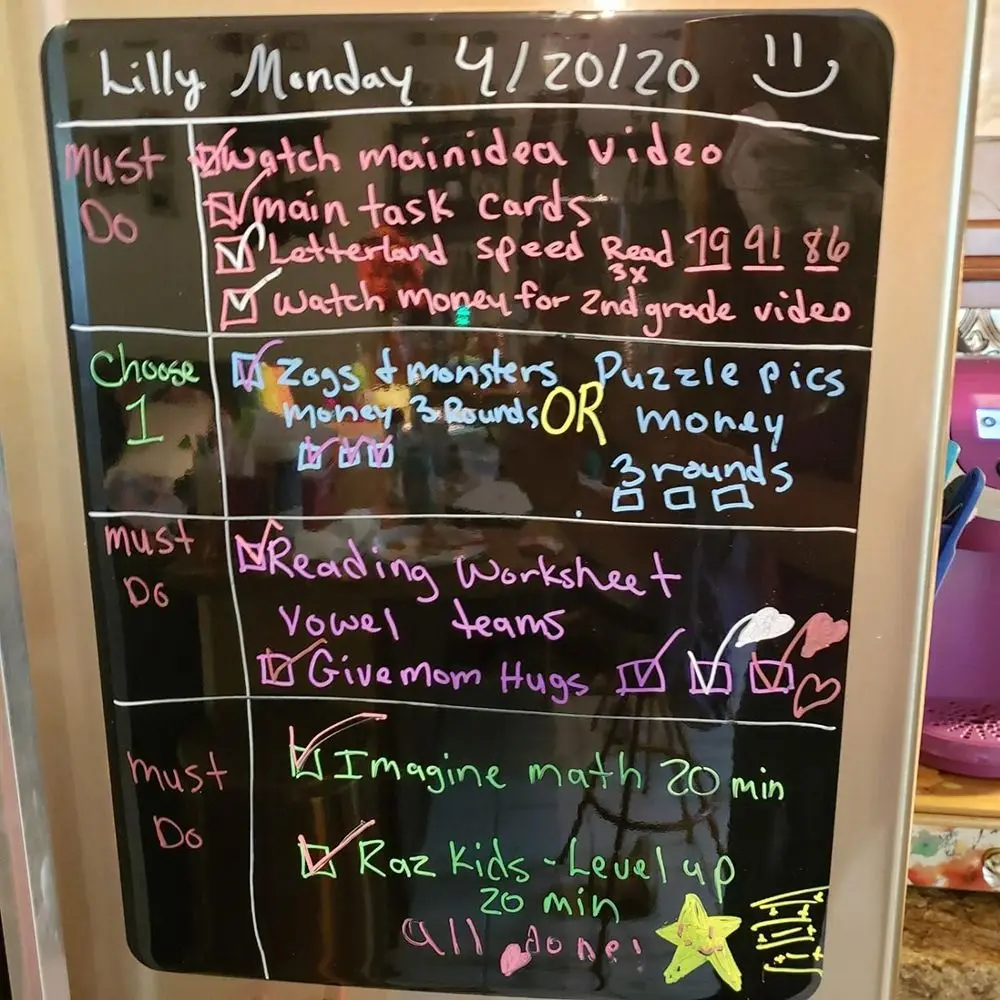 Lilly Monday 4/20/20
Must Do
Watch mainidea video
main task cards
Letterland speed Read 79 91 86
3x
Watch money for 2nd grade video
Choose 1
Zogs & monsters
money 3 Rounds
OR
Puzzle pics
money
3 rounds
must Do
Reading Worksheet
Vowel teams
Give mom Hugs
must Do
Imagine math 20 min
Raz Kids - Level up
20 min
all done!